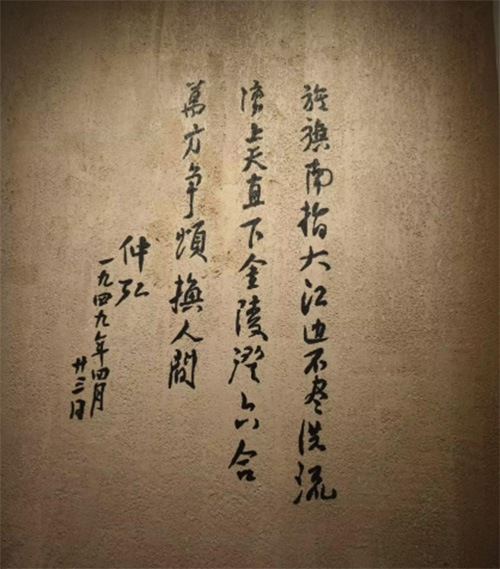 旌旗南指大江边不尽洪流
湧上天直下金陵澄六合
萬方争頌撫人間
仲弘
一九四九年四月
廿三日